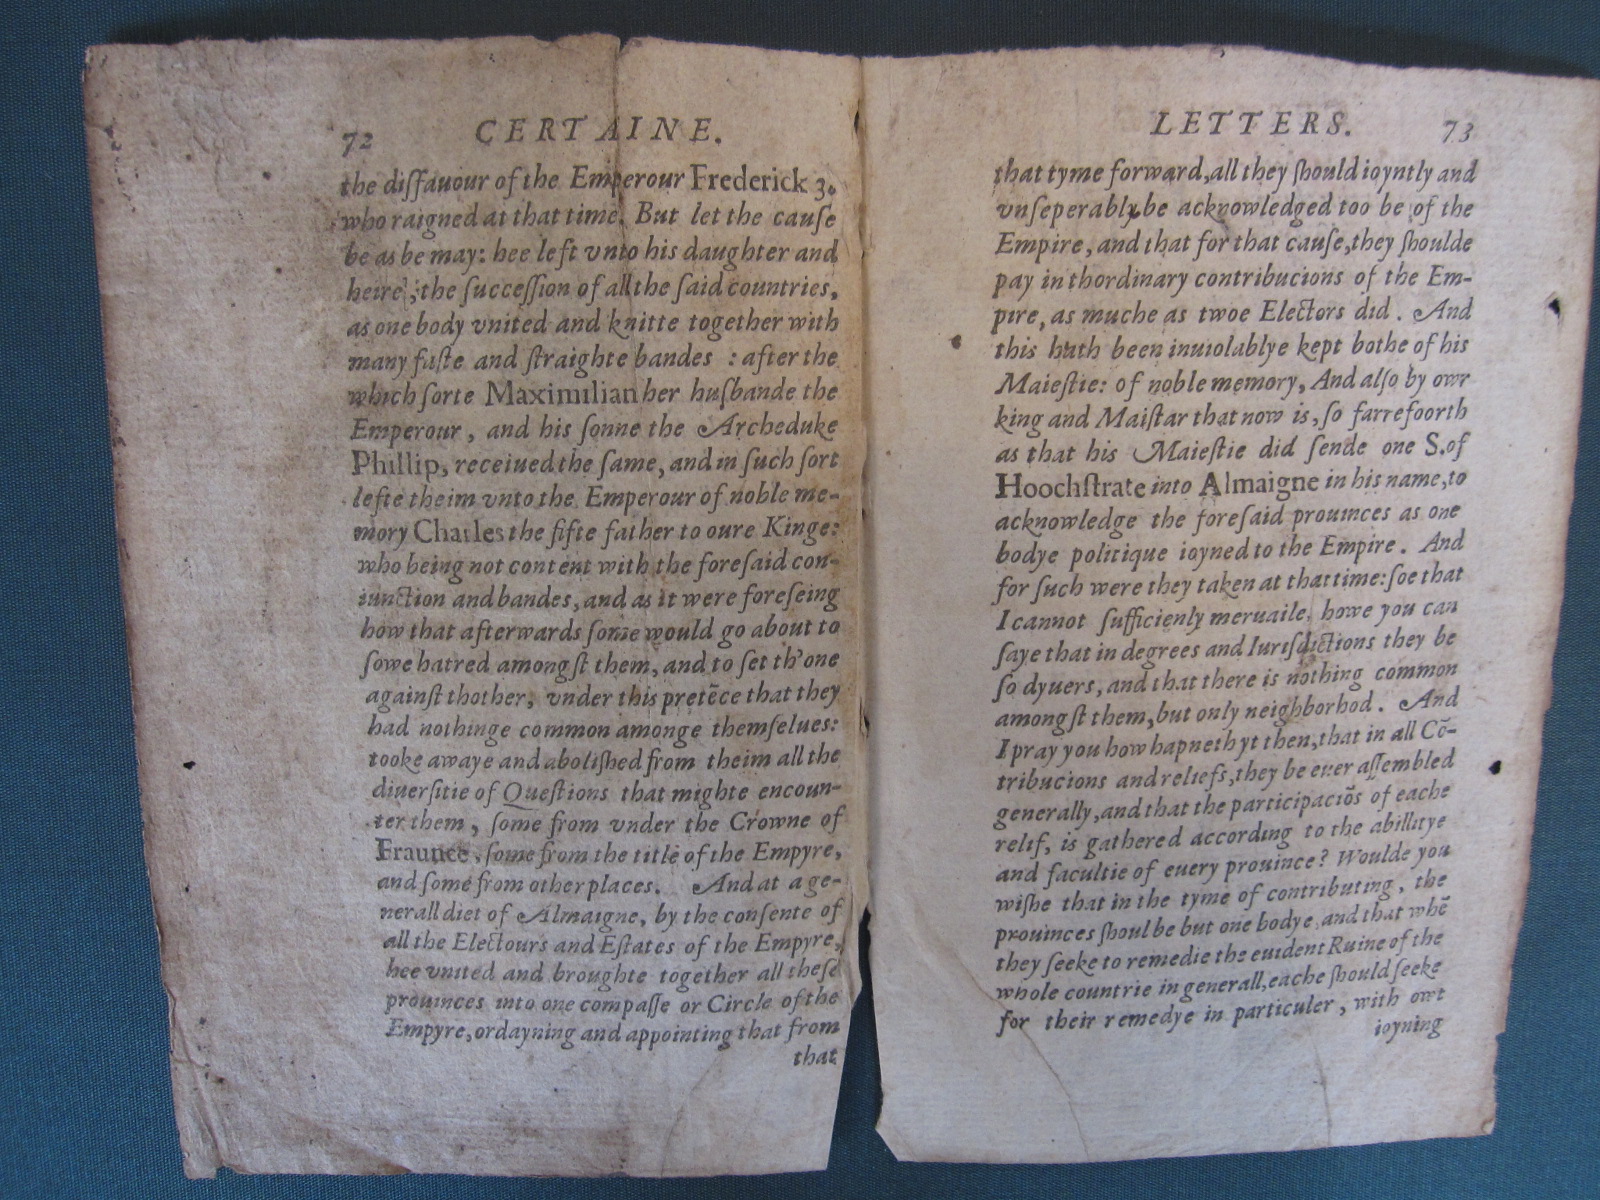 72 CERTAINE.
the disfauour of the Emperour Frederick 3.
who raigned at that time. But let the cause
be as be may: hee left vnto his daughter and
heire, the succession of all the said countries,
as one body vnited and knitte together with
many faste and straighte bandes : after the
which sorte Maximilian her husbande the
Emperour, and his sonne the Archeduke
Phillip, receiued the same, and in such sort
lefte theim vnto the Emperour of noble me-
mory Charles the fifte father to oure Kinge:
who being not content with the foresaid con-
iunction and bandes, and as it were foreseing
how that afterwards some would go about to
sowe hatred amongst them, and to set th'one
against thother, vnder this pretēce that they
had nothinge common amonge themselues:
tooke awaye and abolished from theim all the
diuersitie of Questions that mighte encoun-
ter them, some from vnder the Crowne of
Fraunce, some from the title of the Empyre,
and some from other places. And at a ge-
nerall diet of Almaigne, by the consente of
all the Electours and Estates of the Empyre,
hee vnited and broughte together all these
prouinces into one compasse or Circle of the
Empyre, ordayning and appointing that from
that
LETTERS. 73
that tyme forward, all they should ioyntly and
vnseperably be acknowledged too be of the
Empire, and that for that cause, they shoulde
pay in thordinary contribucions of the Em-
pire, as muche as twoe Electors did. And
this hath been inuiolablye kept bothe of his
Maiestie: of noble memory, And also by owr
king and Maistar that now is, so farrefoorth
as that his Maiestie did sende one S. of
Hoochstrate into Almaigne in his name, to
acknowledge the foresaid prouinces as one
bodye politique ioyned to the Empire. And
for such were they taken at that time: soe that
I cannot sufficienly meruaile, howe you can
saye that in degrees and Iurisdictions they be
so dyuers, and that there is nothing common
amongst them, but only neighborhod. And
I pray you how hapneth yt then, that in all Cō-
tribucions and reliefs, they be euer assembled
generally, and that the participaciōs of eache
relif, is gathered according to the abillitye
and facultie of euery prouince? Woulde you
wishe that in the tyme of contributing, the
prouinces shoul be but one bodye, and that whē
they seeke to remedie the euident Ruine of the
whole countrie in generall, eache should seeke
for their remedye in particuler, with owt
ioyning